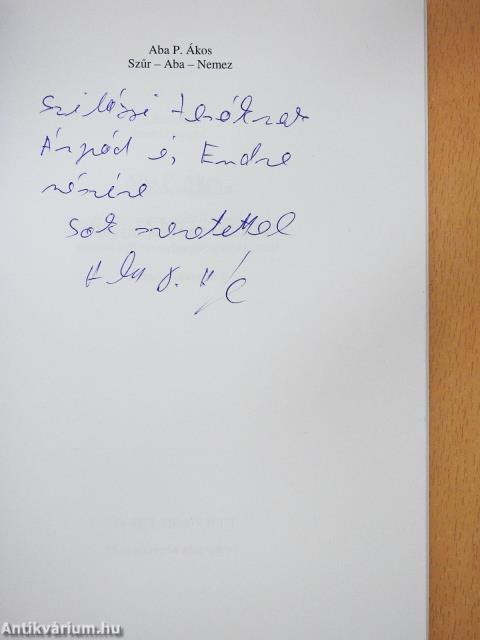 Aba P. Ákos
Szűr – Aba – Nemez
Szilassi
Árpád és Endre
részére
sok szeretettel
Antikvárium.hu